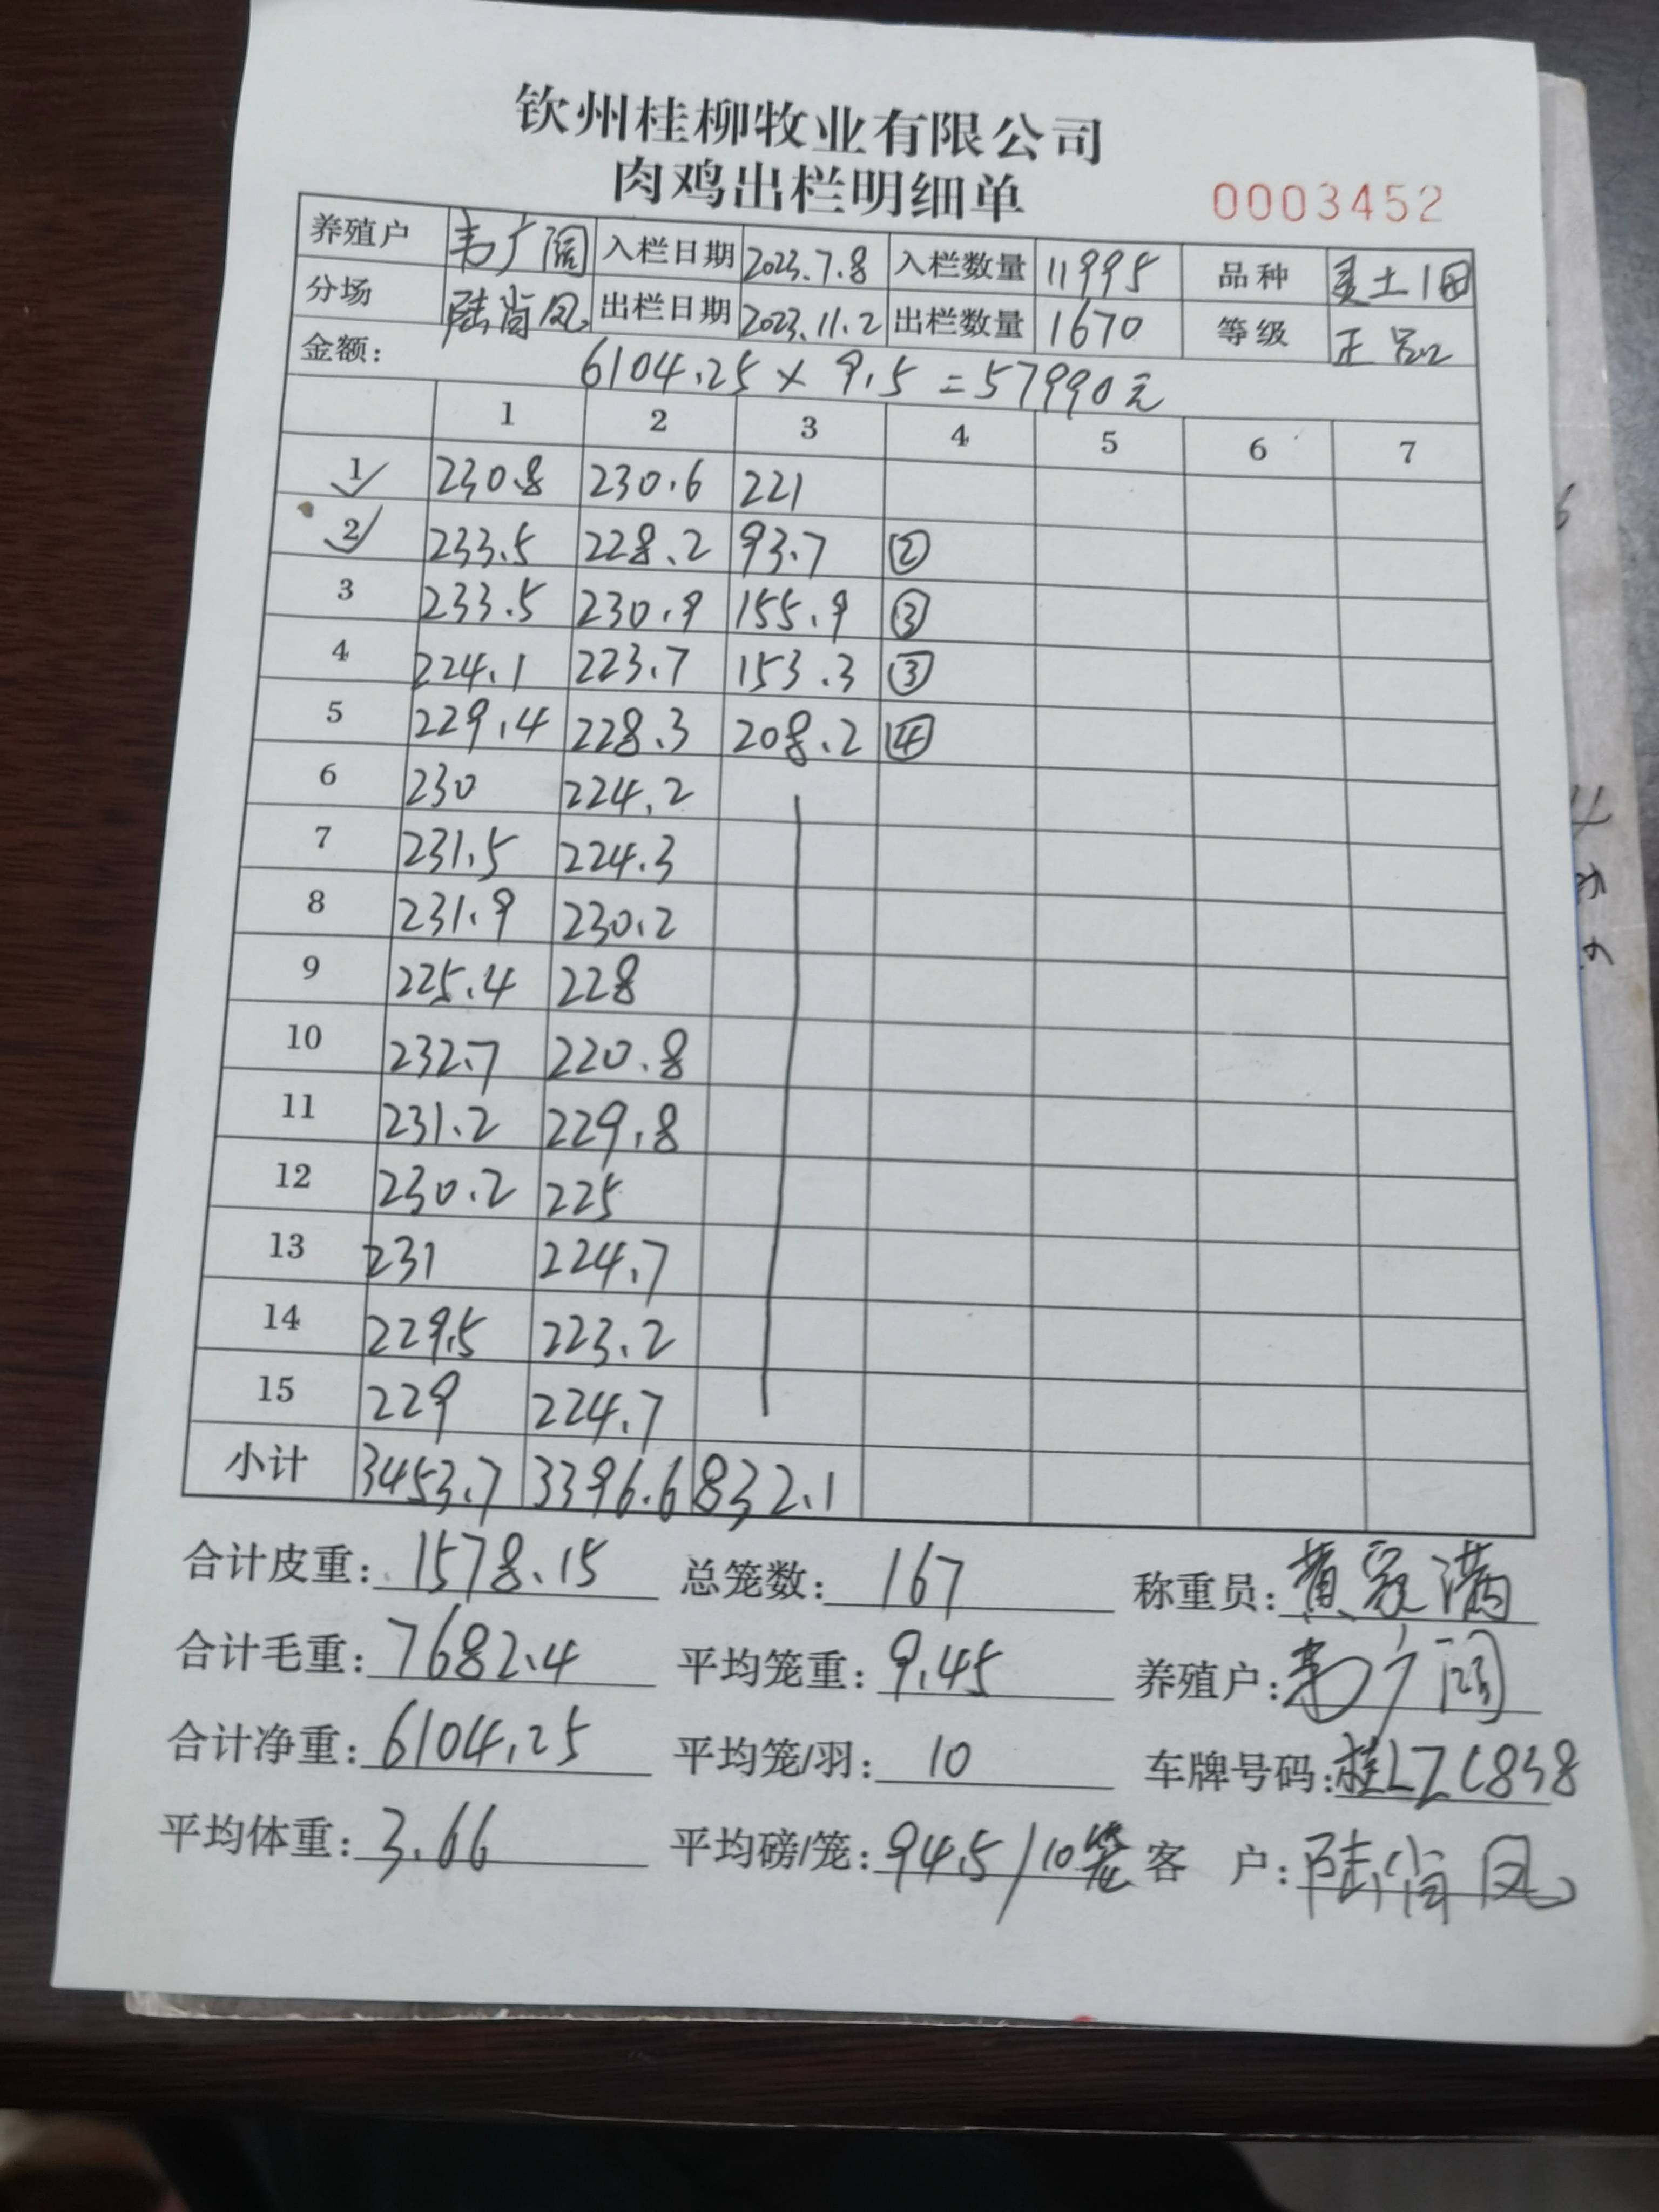 钦州桂柳牧业有限公司
肉鸡出栏明细单
0003452
养殖户 韦广阔 入栏日期 2023.7.8 入栏数量 11995 品种 灵土1四
分场 陆肖凤 出栏日期 2023.11.2 出栏数量 1670 等级 正品
金额: 6104.25×9.5=57990元
1 2 3 4 5 6 7
1✓ 230.8 230.6 221
2✓ 233.5 228.2 93.7 ②
3 233.5 230.9 155.9 ③
4 224.1 223.7 153.3 ③
5 229.4 228.3 208.2 ④
6 230 224.2
7 231.5 224.3
8 231.9 230.2
9 225.4 228
10 232.7 220.8
11 231.2 229.8
12 230.2 225
13 231 224.7
14 229.5 223.2
15 229 224.7
小计 3453.7 3396.6 832.1
合计皮重: 1578.15 总笼数: 167 称重员: 黄家满
合计毛重: 7682.4 平均笼重: 9.45 养殖户: 韦广阔
合计净重: 6104.25 平均笼/羽: 10 车牌号码: 桂LZC838
平均体重: 3.66 平均磅/笼: 94.5/10笼 客 户: 陆肖凤